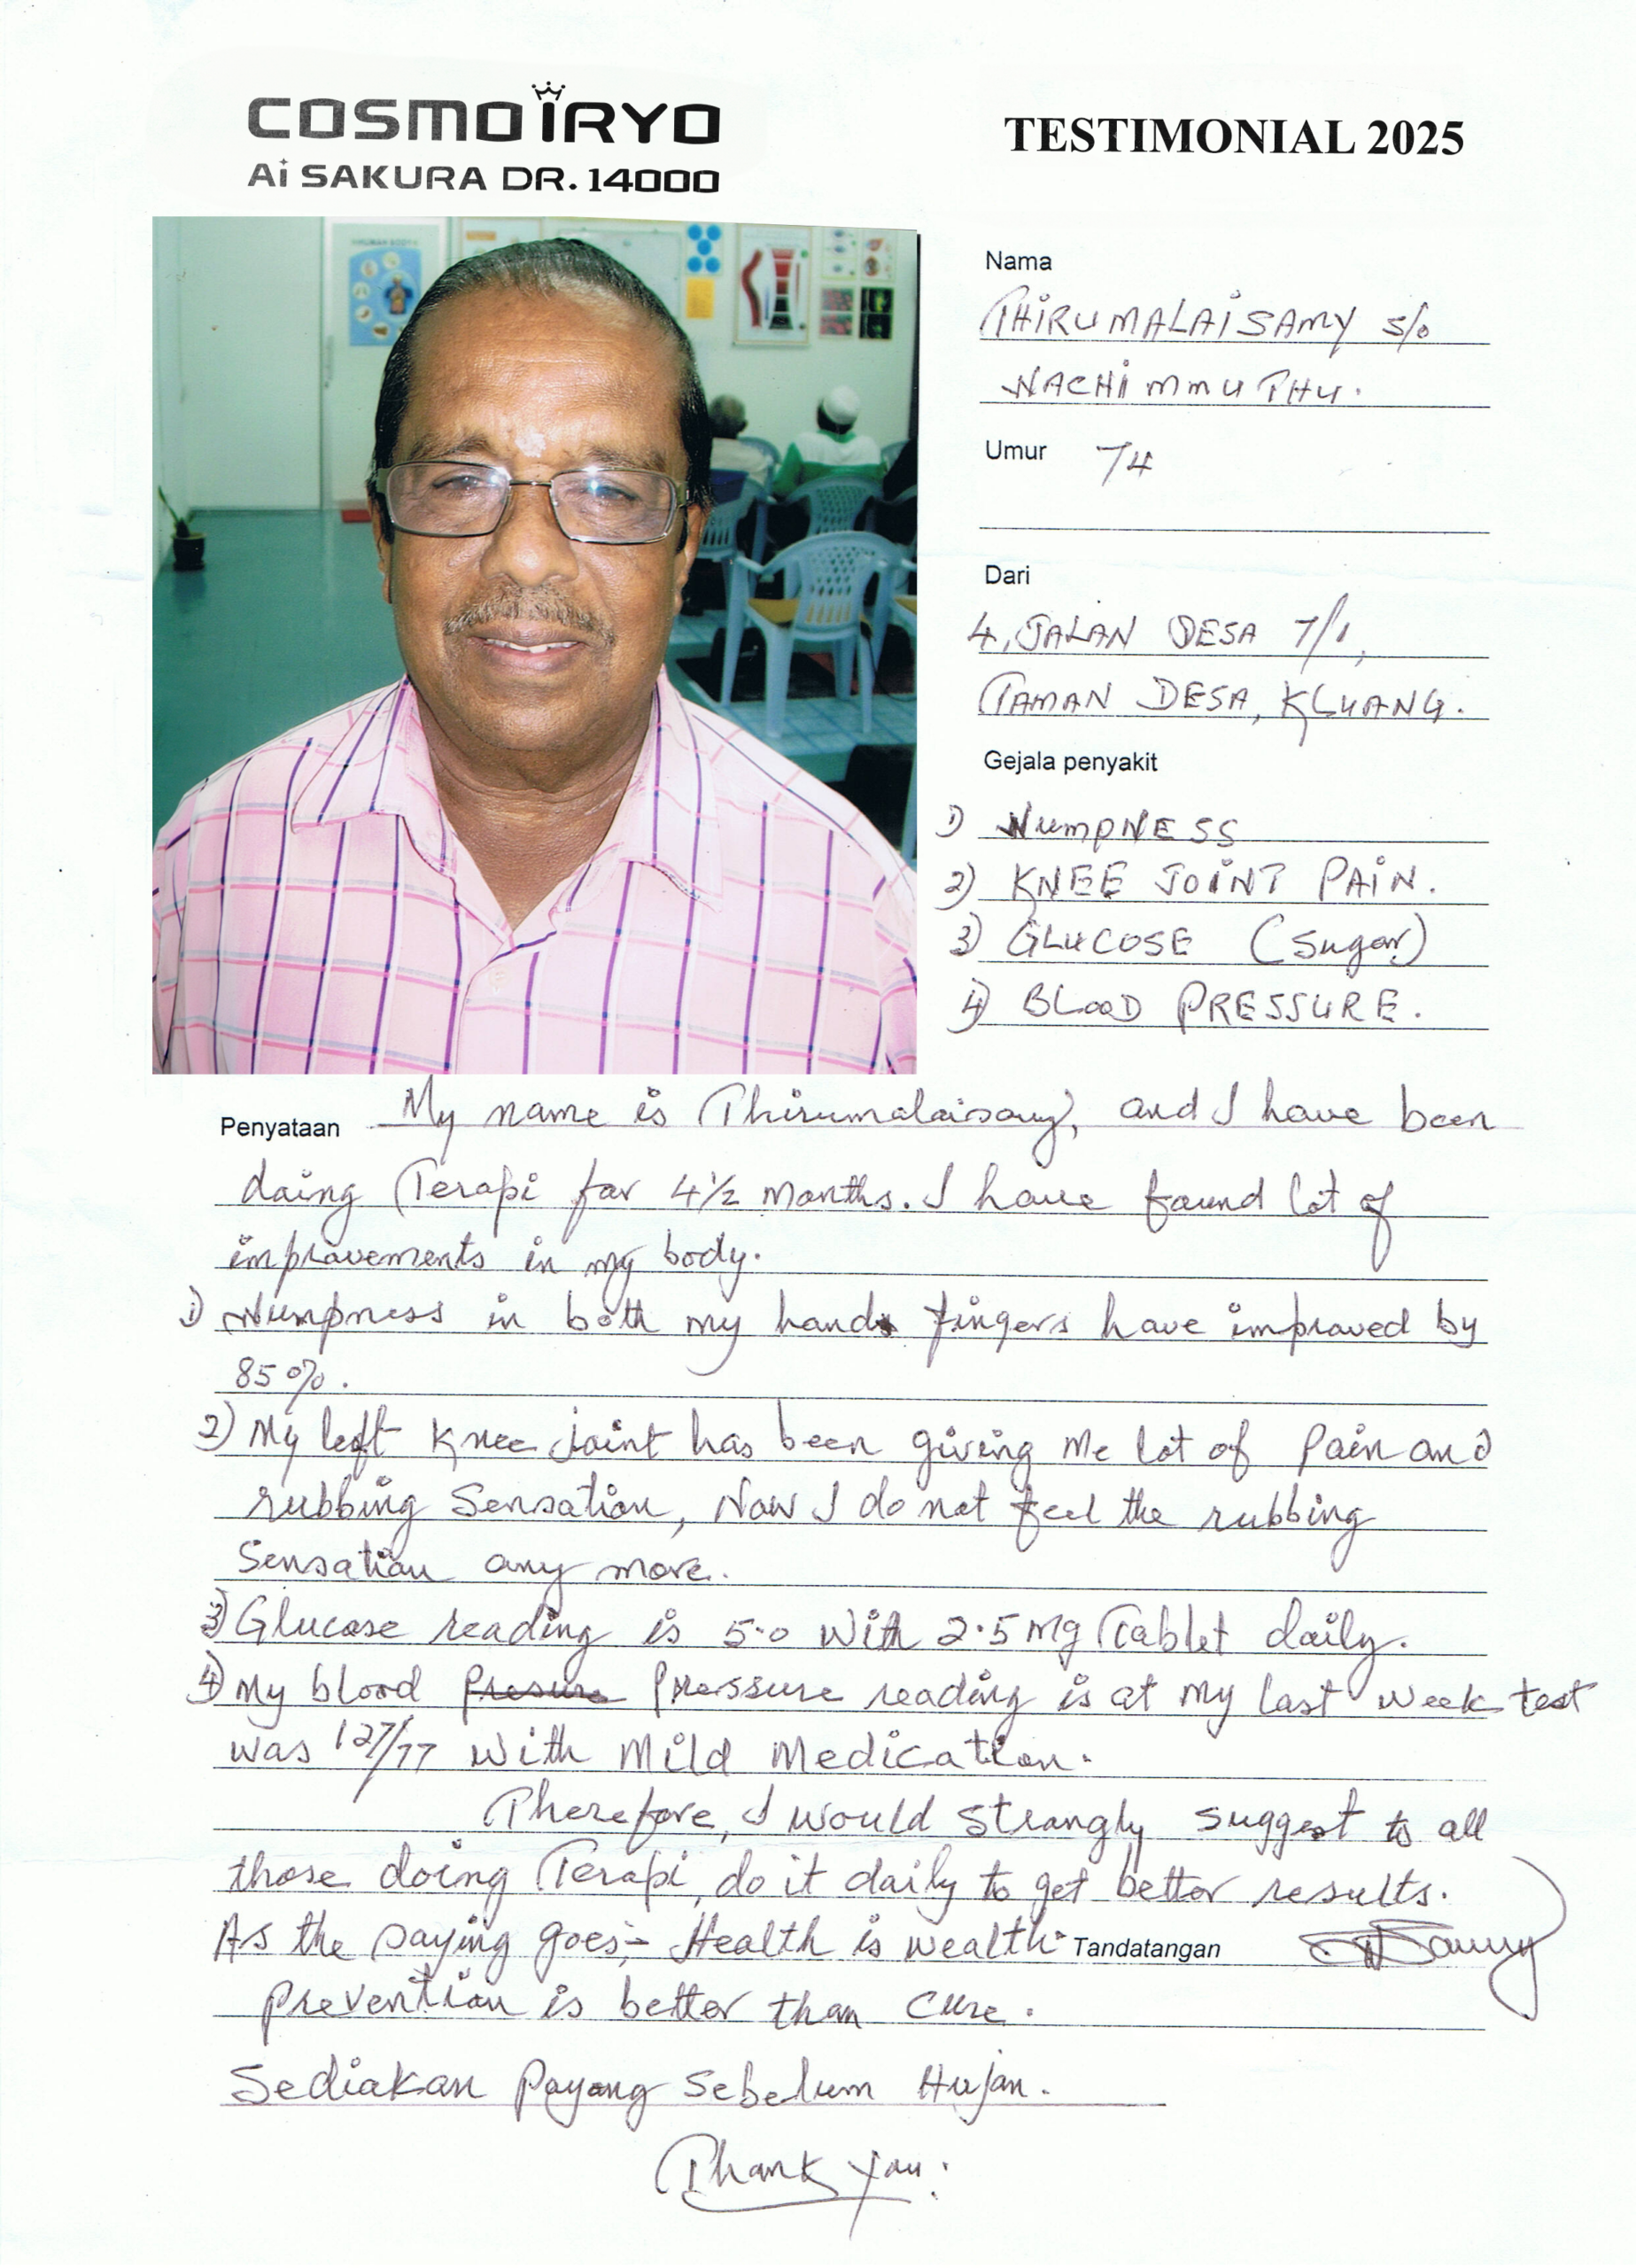 COSMO iRYO
Ai SAKURA DR. 14000
TESTIMONIAL 2025
Nama
THiRUMALAiSAMY s/o
NACHiMMUTHU.
Umur 74
Dari
4, JALAN DESA 7/1,
TAMAN DESA, KLUANG.
Gejala penyakit
1) NumpNESS
2) KNEE JOiNT PAiN.
3) GLUCOSE (Sugar)
4) BLOOD PRESSURE.
Penyataan My name is Thirumalaisamy, and I have been
doing Terapi for 4½ months. I have found lot of
improvements in my body.
1) Numpness in both my hand fingers have improved by
85%.
2) My left knee joint has been giving me lot of pain and
rubbing sensation, Now I do not feel the rubbing
sensation any more.
3) Glucose reading is 5.0 with 2.5 mg Tablet daily.
4) My blood presure pressure reading is at my last week test
was 127/77 with mild medication.
Therefore, I would strongly suggest to all
those doing Terapi, do it daily to get better results.
As the saying goes;- Health is wealth.
Tandatangan
Prevention is better than cure.
Sediakan Payong Sebelum Hujan.
Thank you.